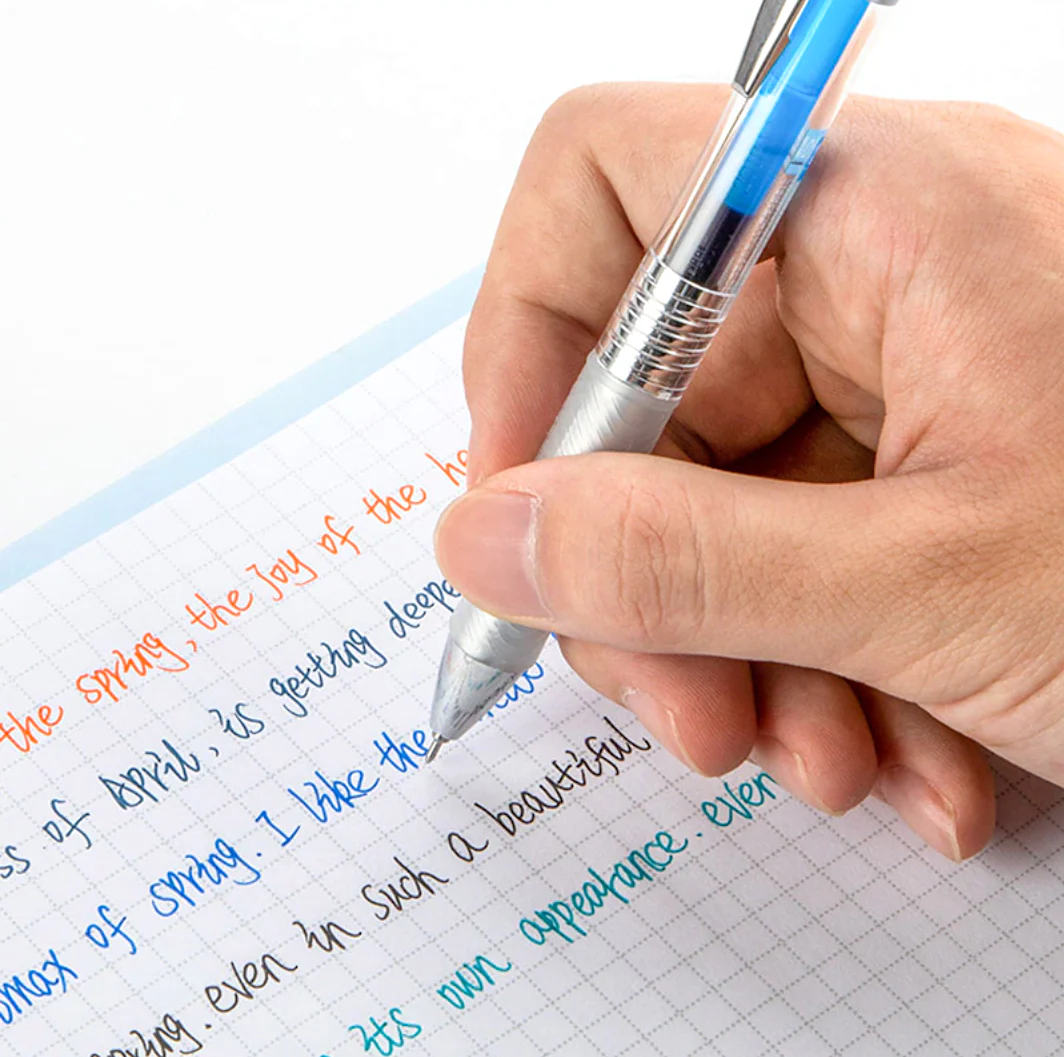 the spring, the joy of the
of April, is getting
of spring. I like the
spring. even in such a beautiful
its own appearance. even